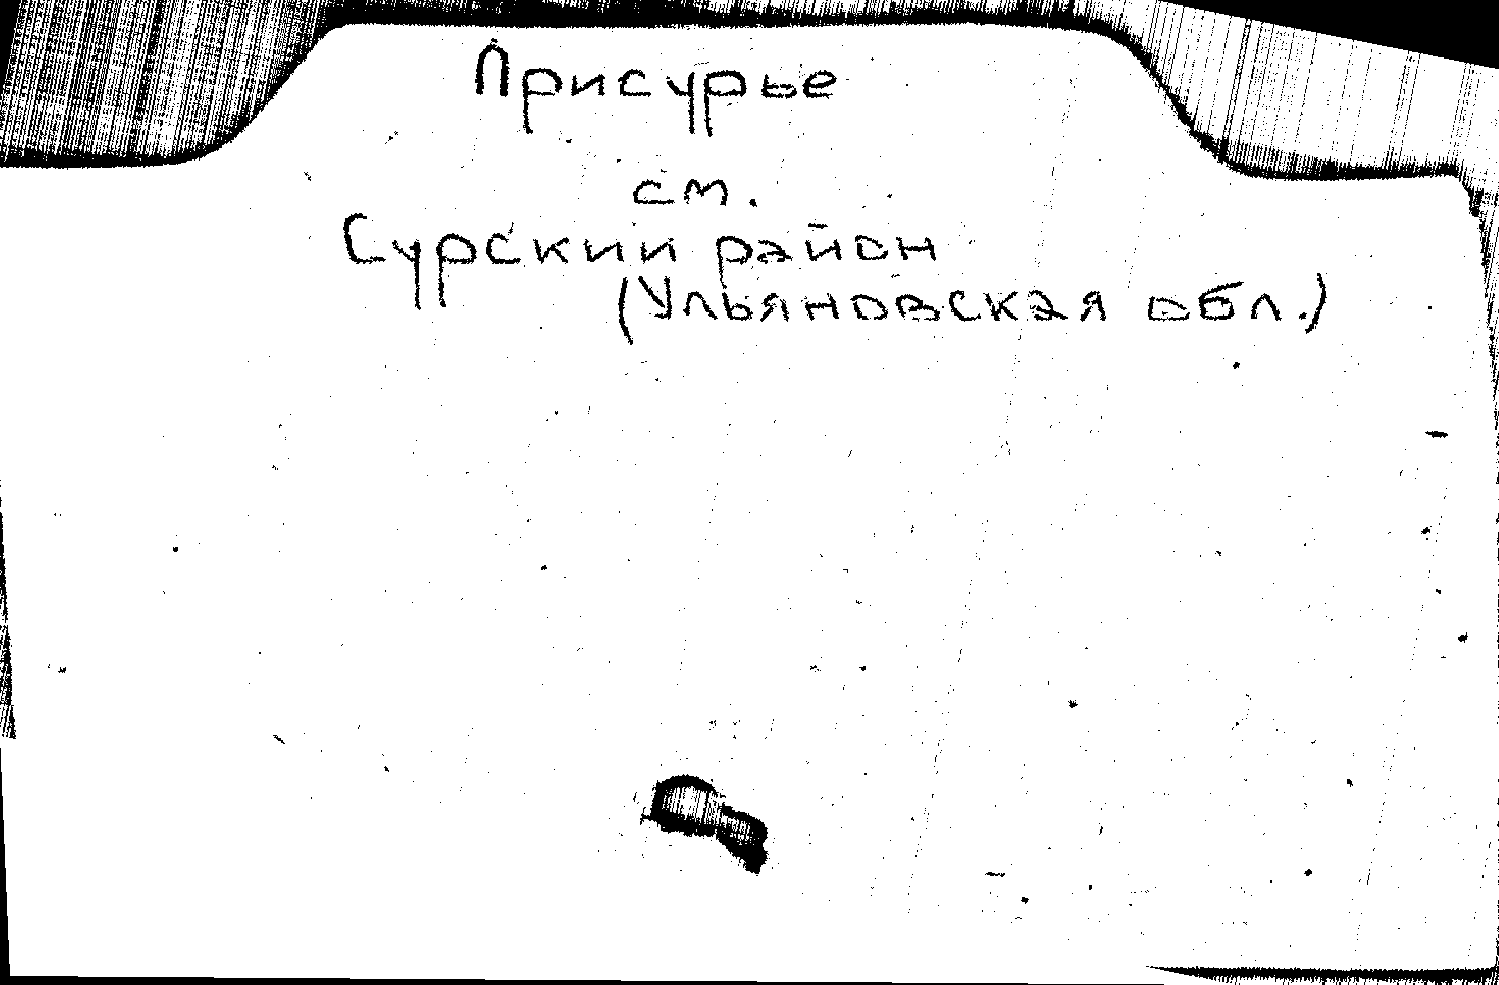 Присурье
см.
Сурскии район
(Ульяновская обл.)